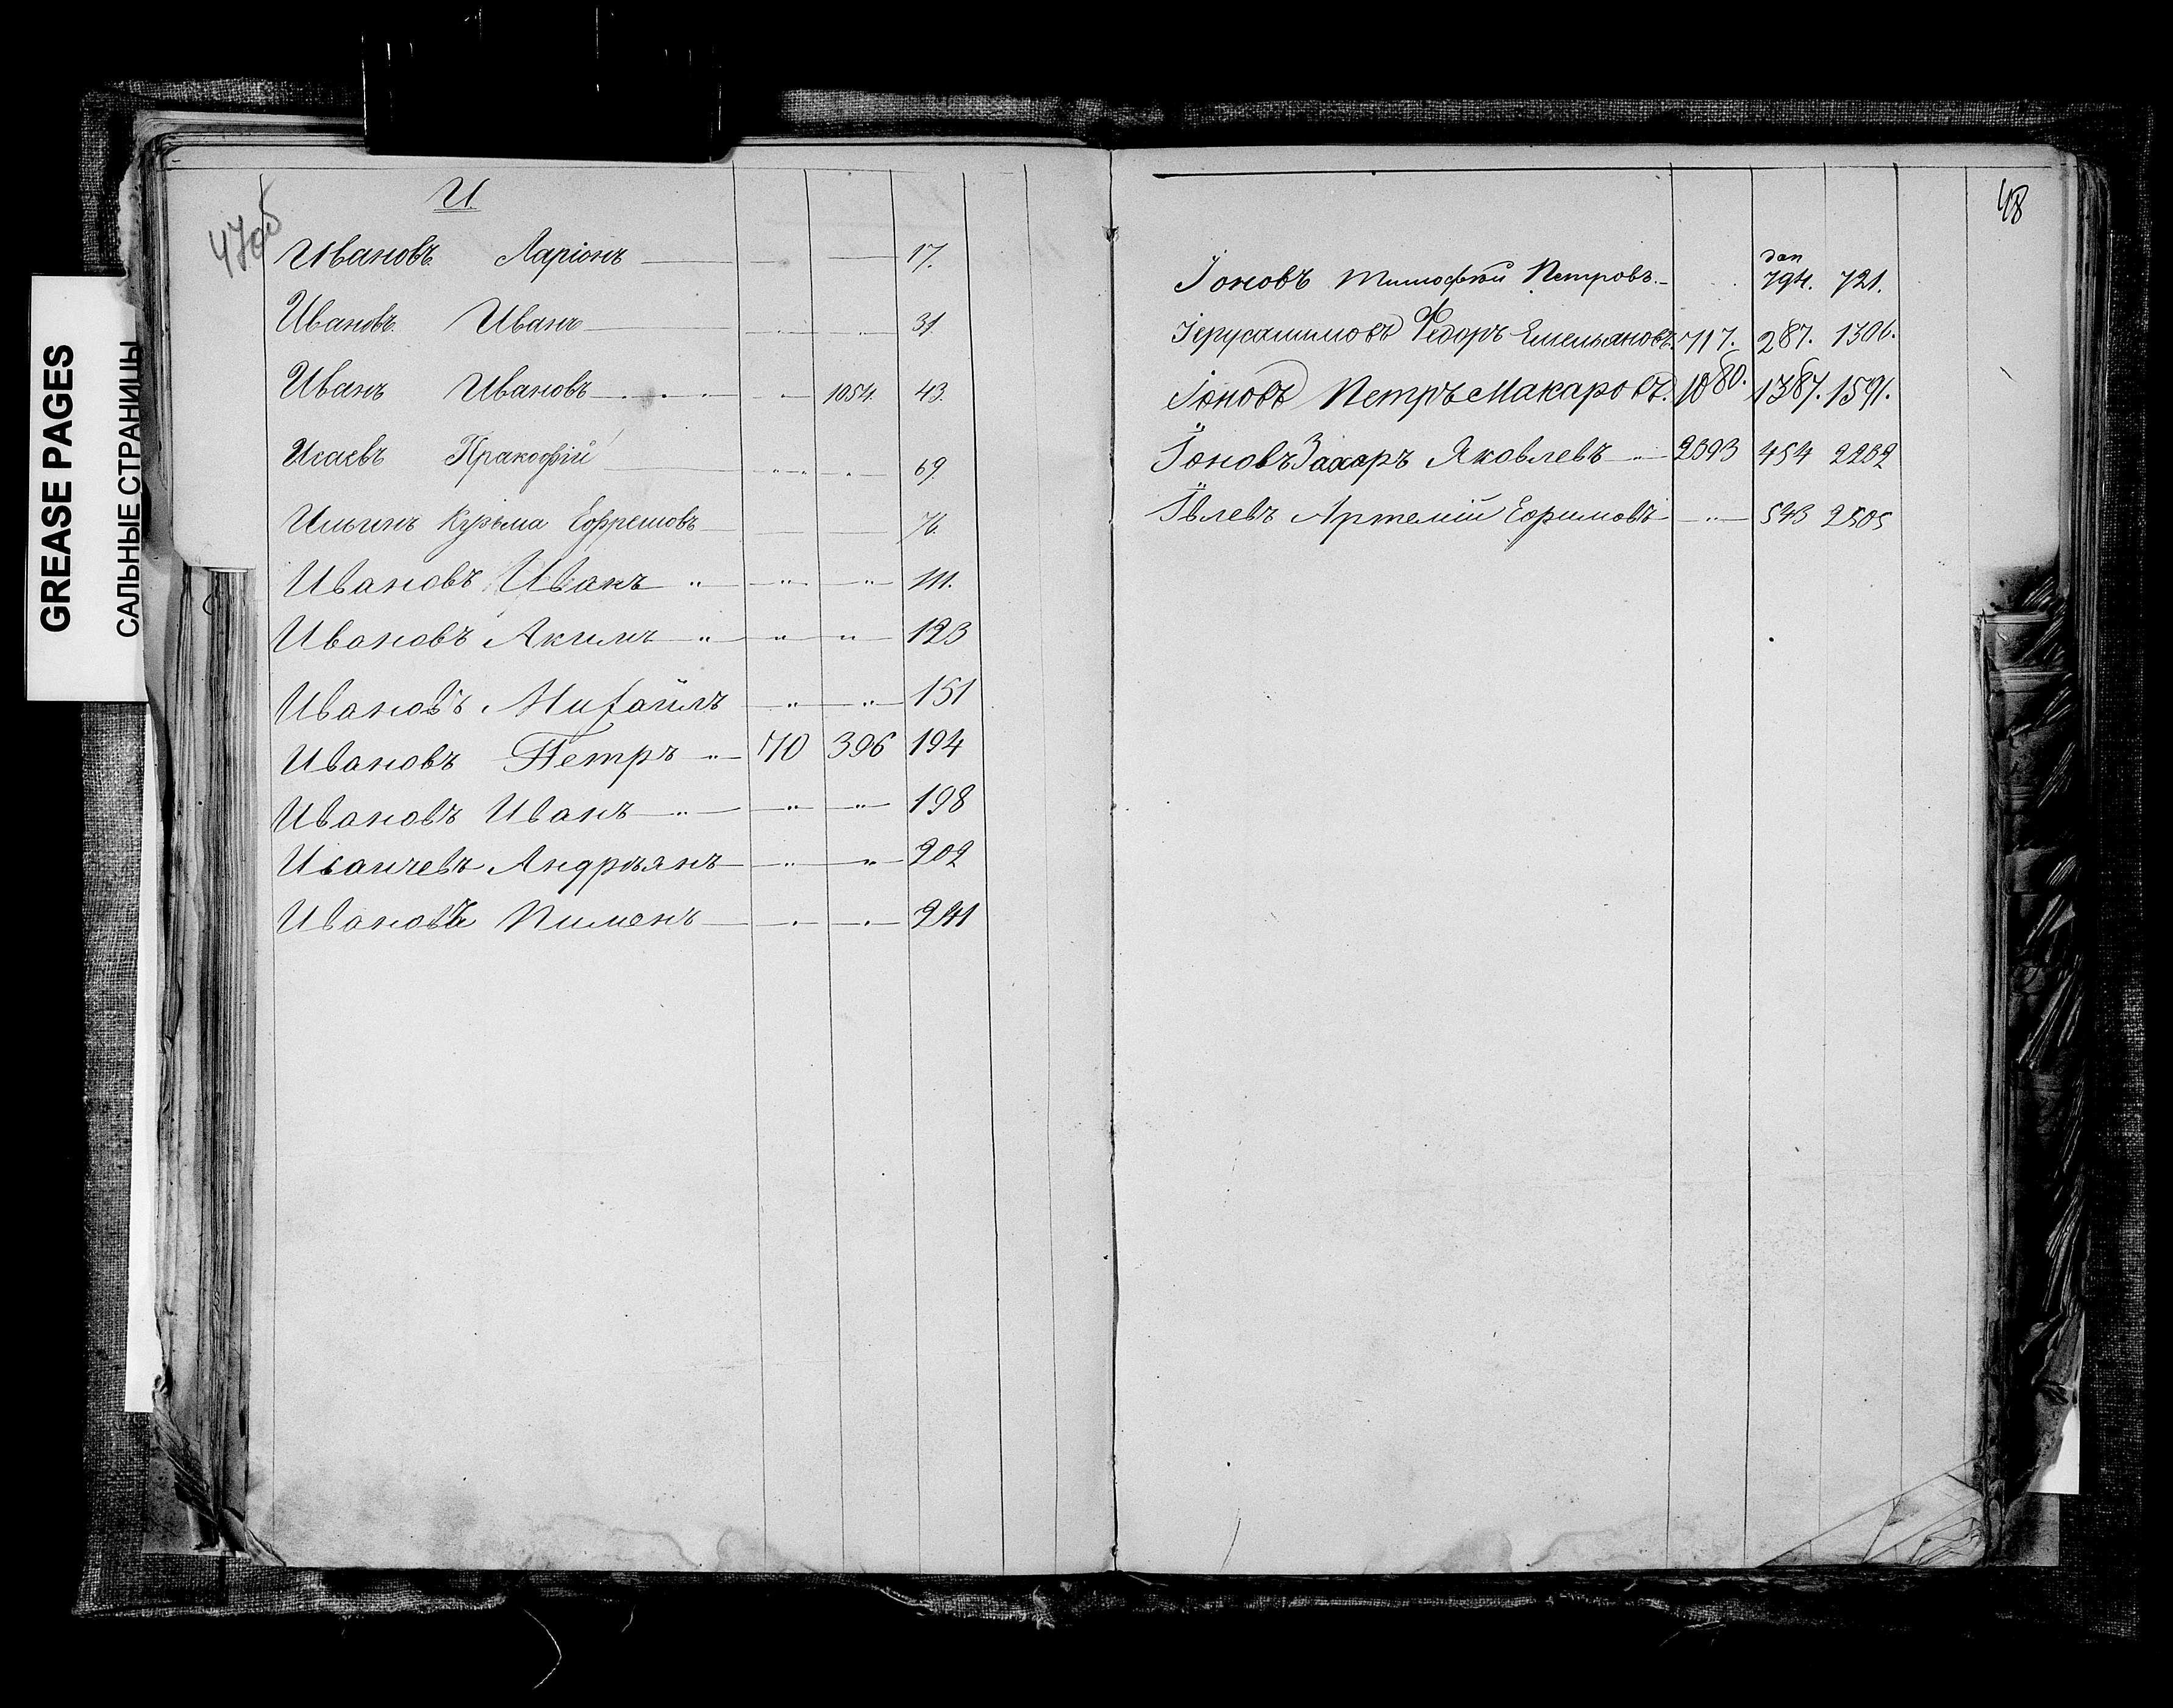 GREASE PAGES
САЛЬНЫЕ СТРАНИЦЫ
47об
И.
Ивановъ Ларіонъ 17.
Ивановъ Иванъ 31
Иванъ Ивановъ 1054. 43.
Исаевъ Пракофій 69.
Ильинъ Кузьма Ефремовъ 76.
Ивановъ Иванъ " " " 111.
Ивановъ Акимъ " " " 123
Ивановъ Михаилъ " " 151
Ивановъ Петръ " 710 396 194
Ивановъ Иванъ " " " 198
Андрѣянъ " " 202
Ивановъ Пименъ 241
48
доп
Іоновъ Тимофѣй Петровъ. 794. 721.
Іерусалимовъ Федоръ Емельяновъ. 717. 287. 1306.
Іоновъ Петръ Макаровъ. 1080. 1387. 1591.
Іоновъ Захаръ Яковлевъ " 2393 454 2232
Івлевъ Артемій Ефимовъ " 543 2505